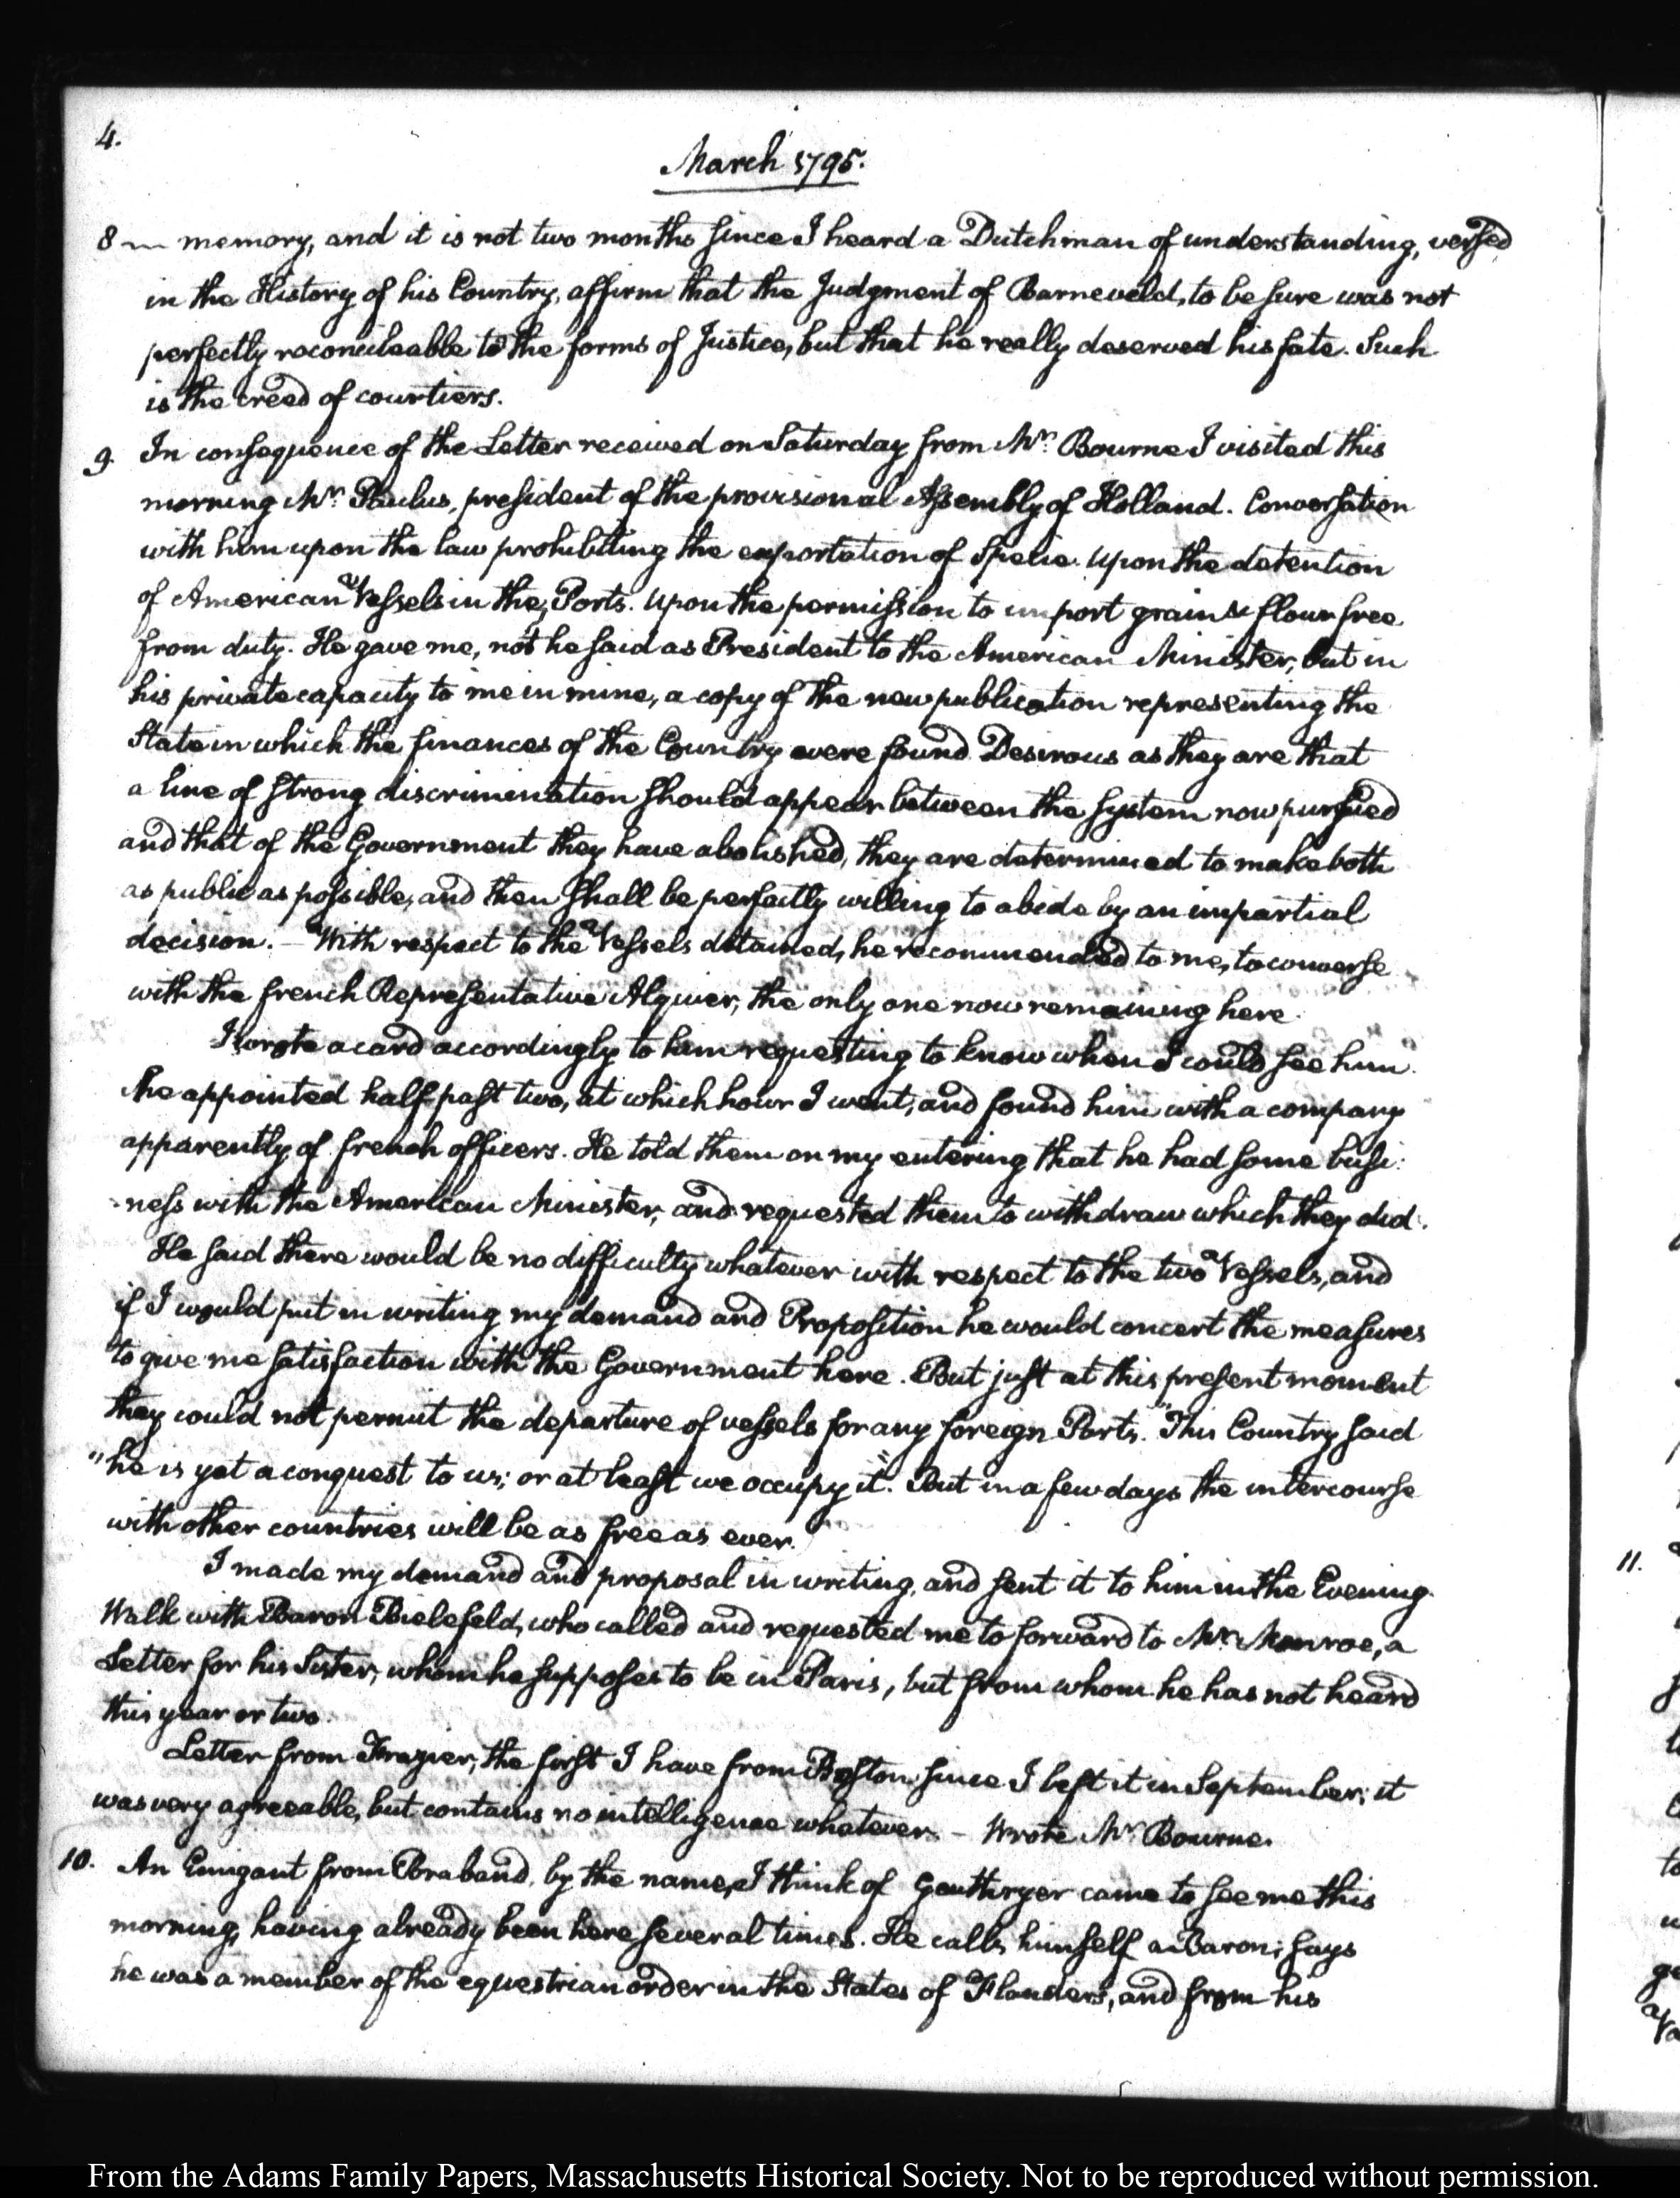 4.
March 1795.
8 memory, and it is not two months since I heard a Dutchman of understanding, versed
in the History of his Country, affirm that the Judgment of Barneveld, to be sure was not
perfectly reconcileable to the forms of Justice, but that he really deserved his fate. Such
is the creed of courtiers.
9. In consequence of the Letter received on Saturday from Mr. Bourne I visited this
morning Mr. Paulus, president of the provisional Assembly of Holland. Conversation
with him upon the law prohibiting the exportation of Specie. Upon the detention
of American Vessels in the Ports. Upon the permission to import grain & flour free
from duty. He gave me, not he said as President to the American Minister, but in
his private capacity to me in mine, a copy of the new publication representing the
State in which the finances of the Country were found. Desirous as they are that
a line of strong discrimination should appear between the system now pursued
and that of the Government they have abolished, they are determined to make both
as public as possible, and then shall be perfectly willing to abide by an impartial
decision. — With respect to the Vessels detained, he recommended to me, to converse
with the french Representative Alquier, the only one now remaining here.
I wrote a card accordingly to him requesting to know when I could see him.
he appointed half past two, at which hour I went, and found him with a company
apparently of french officers. He told them on my entering that he had some busi:
ness with the American Minister, and requested them to withdraw which they did.
He said there would be no difficulty whatever with respect to the two Vessels, and
if I would put in writing my demand and Proposition he would concert the measures
to give me satisfaction with the Government here. But just at this present moment
they could not permit the departure of vessels for any foreign Ports. "This Country said
"he is yet a conquest to us; or at least we occupy it." But in a few days the intercourse
with other countries will be as free as ever.
I made my demand and proposal in writing, and sent it to him in the Evening.
Walk with Baron Bielefeld, who called and requested me to forward to Mr. Monroe, a
Letter for his Sister, whom he supposes to be in Paris, but from whom he has not heard
this year or two.
Letter from Frazier, the first I have from Boston since I left it in September; it
was very agreeable, but contains no intelligence whatever. — Wrote Mr. Bourne.
10. An Emigant from Braband, by the name, I think of came to see me this
morning, having already been here several times. He calls himself a Baron; says
he was a member of the equestrian order in the States of Flanders, and from his
11.
From the Adams Family Papers, Massachusetts Historical Society. Not to be reproduced without permission.